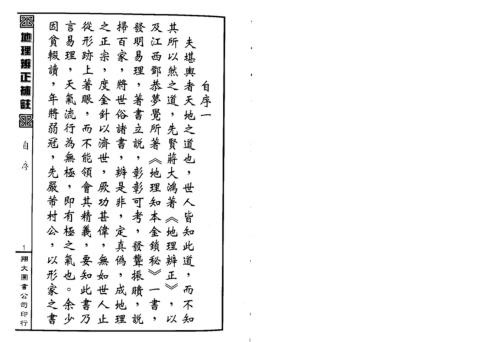 自序一
夫堪輿者天地之道也，世人皆知此道，而不知
其所以然之道，先賢蔣大鴻著《地理辨正》，以
及江西鄧恭夢覺所著《地理知本金鎖秘》一書，
發明易理，著書立說，彰彰可考，發聾振聵，說
掃百家，將世俗諸書，辨是非，定真偽，成地理
之正宗，度金針以濟世，厥功甚偉，無如世人止
從形跡上著眼，而不能領會其精義，要知此書乃
言易理，天氣流行為無極，即有極之氣也。余少
因貧輟讀，年將弱冠，先嚴芾村公，以形家之書
地理辨正補註
自序
1
翔大圖書公司印行